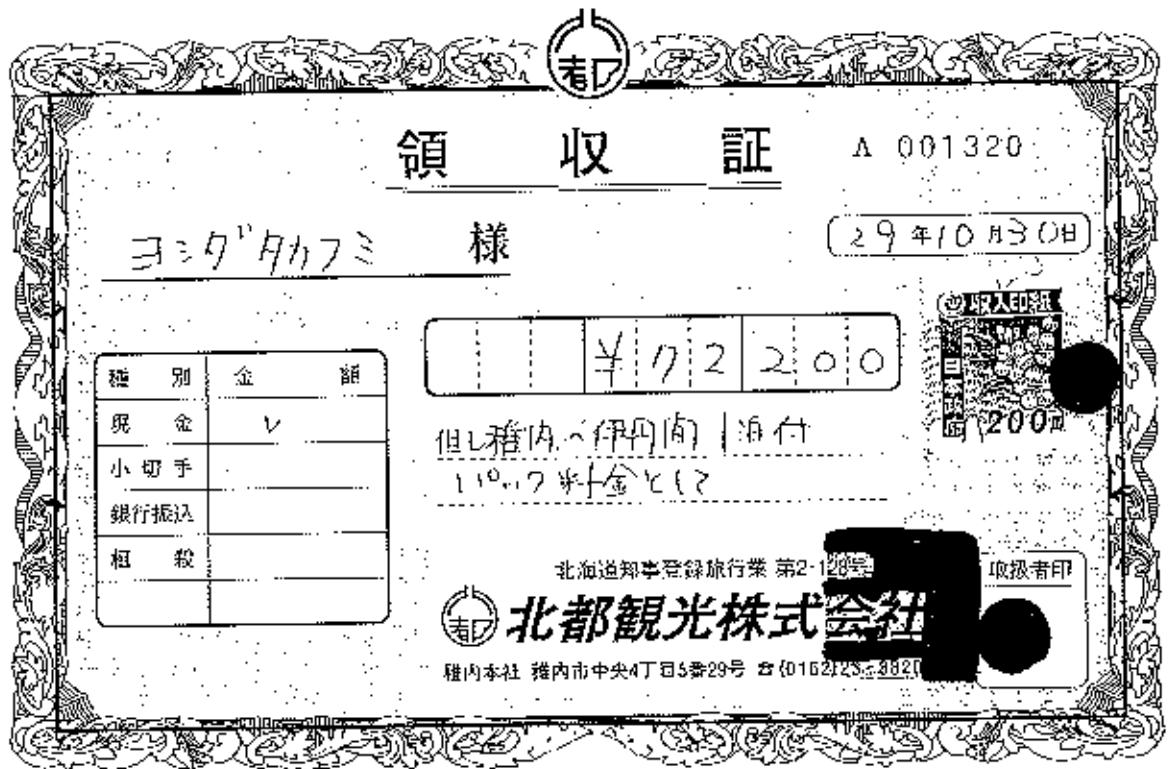 都
領収証
A 001320
ヨシダタカフミ 様
29年10月30日
収入印紙
200円
¥72200
種別 金額
現金 レ
小切手
銀行振込
相殺
但し稚内〜伊丹間1泊付
パック料金として
北海道知事登録旅行業 第2-128号
取扱者印
都 北都観光株式会社
稚内本社 稚内市中央4丁目5番29号 ☎(0162)23-3820